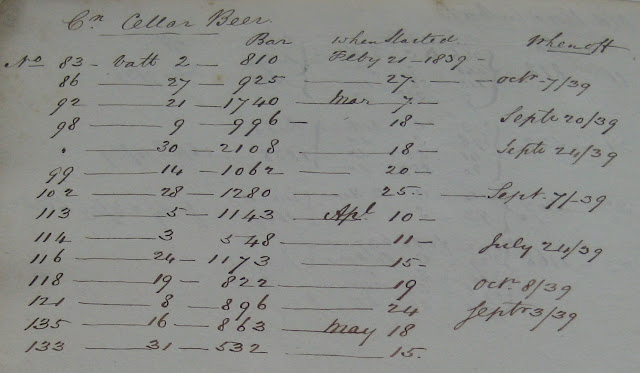 Cn Cellar Beer
Bar when Started When off
No 83 - Vatt 2 - 810 Feby 21 - 1839 -
86 — 27 — 925 — 27 — Octr 7/39
92 — 21 — 1740 — Mar 7 —
98 — 9 — 996 — 18 — Septr 20/39
" — 30 — 2108 — 18 — Septr 24/39
99 — 14 — 1062 — 20 —
102 — 28 — 1280 — 25 — Sept 7/39
113 — 5 — 1143 — Apl 10 —
114 — 3 548 — 11 — July 24/39
116 — 24 — 1173 — 15 —
118 — 19 — 822 — 19 Octr 8/39
121 — 8 — 896 — 24 Septr 3/39
135 — 16 — 863 — May 18
133 — 31 — 532 — 15.